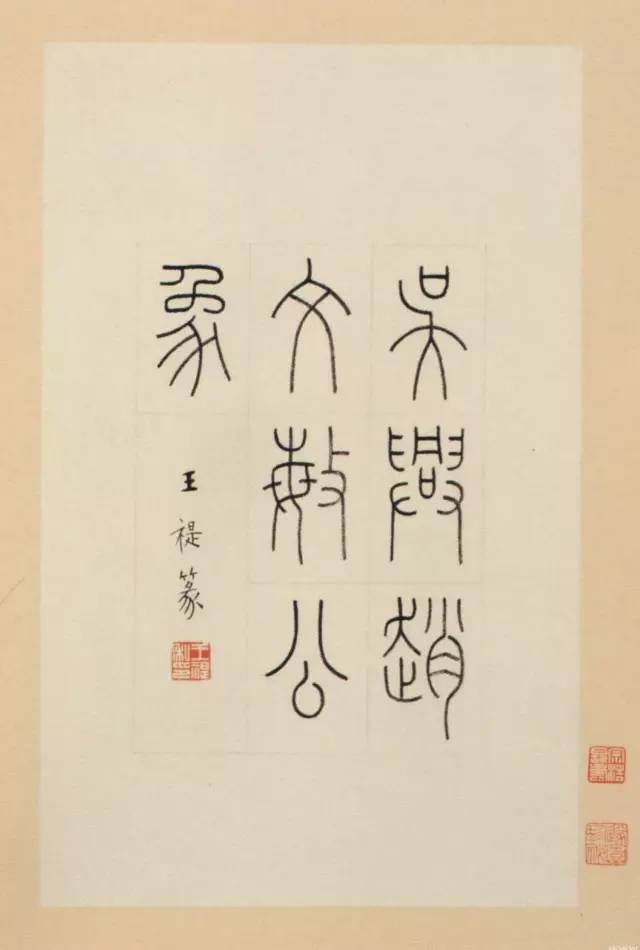 吳興趙
文敏公
象
王禔篆